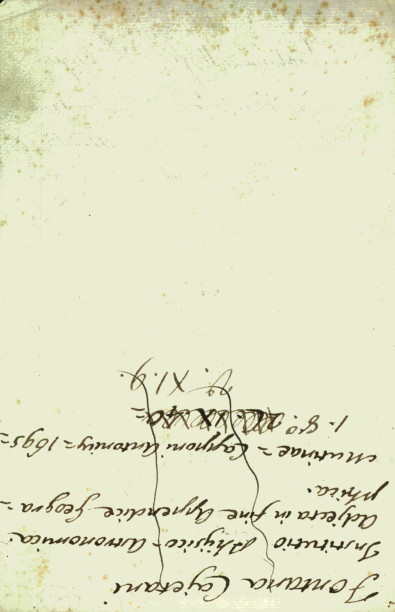 Fontana Cajetani
Institutio Phisico-Astronomica.
Adjecta in fine Appendice Geogra=
phica.
Mutinae = Capponi Antonius = 1695=
1. 8.°
XI. g.